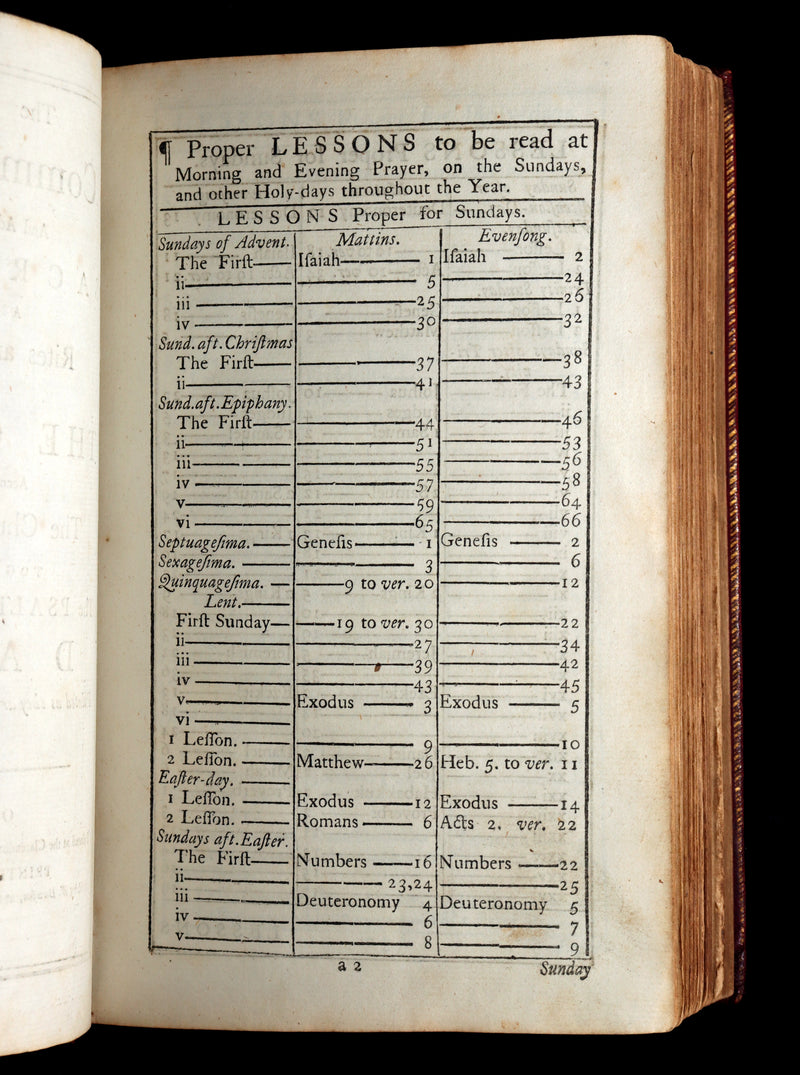 ¶ Proper LESSONS to be read at
Morning and Evening Prayer, on the Sundays,
and other Holy-days throughout the Year.
LESSONS Proper for Sundays.
Sundays of Advent. Mattins. Evenſong.
The Firſt—— Iſaiah—— 1 Iſaiah —— 2
ii—— —— 5 ——24
iii —— ——25 ——26
iv —— ——30 ——32
Sund. aft. Chriſtmas
The Firſt—— ——37 ——38
ii—— ——41 ——43
Sund. aft. Epiphany.
The Firſt—— ——44 ——46
ii—— ——51 ——53
iii—— ——55 ——56
iv —— ——57 ——58
v—— ——59 ——64
vi —— ——65 ——66
Septuageſima. —— Geneſis—— 1 Geneſis —— 2
Sexageſima. —— —— 3 —— 6
Quinquageſima. — ——9 to ver. 20 ——12
Lent.——
Firſt Sunday— ——19 to ver. 30 ——22
ii—— ——27 ——34
iii —— ——39 ——42
iv —— ——43 ——45
v—— Exodus —— 3 Exodus —— 5
vi ——
1 Leſſon. —— —— 9 ——10
2 Leſſon. —— Matthew——26 Heb. 5. to ver. 11
Eaſter-day. ——
1 Leſſon. —— Exodus ——12 Exodus ——14
2 Leſſon. —— Romans —— 6 Acts 2. ver. 22
Sundays aft. Eaſter.
The Firſt—— Numbers ——16 Numbers ——22
ii—— —— 23,24 ——25
iii —— Deuteronomy 4 Deuteronomy 5
iv —— —— 6 —— 7
v—— —— 8 —— 9
a 2 Sunday